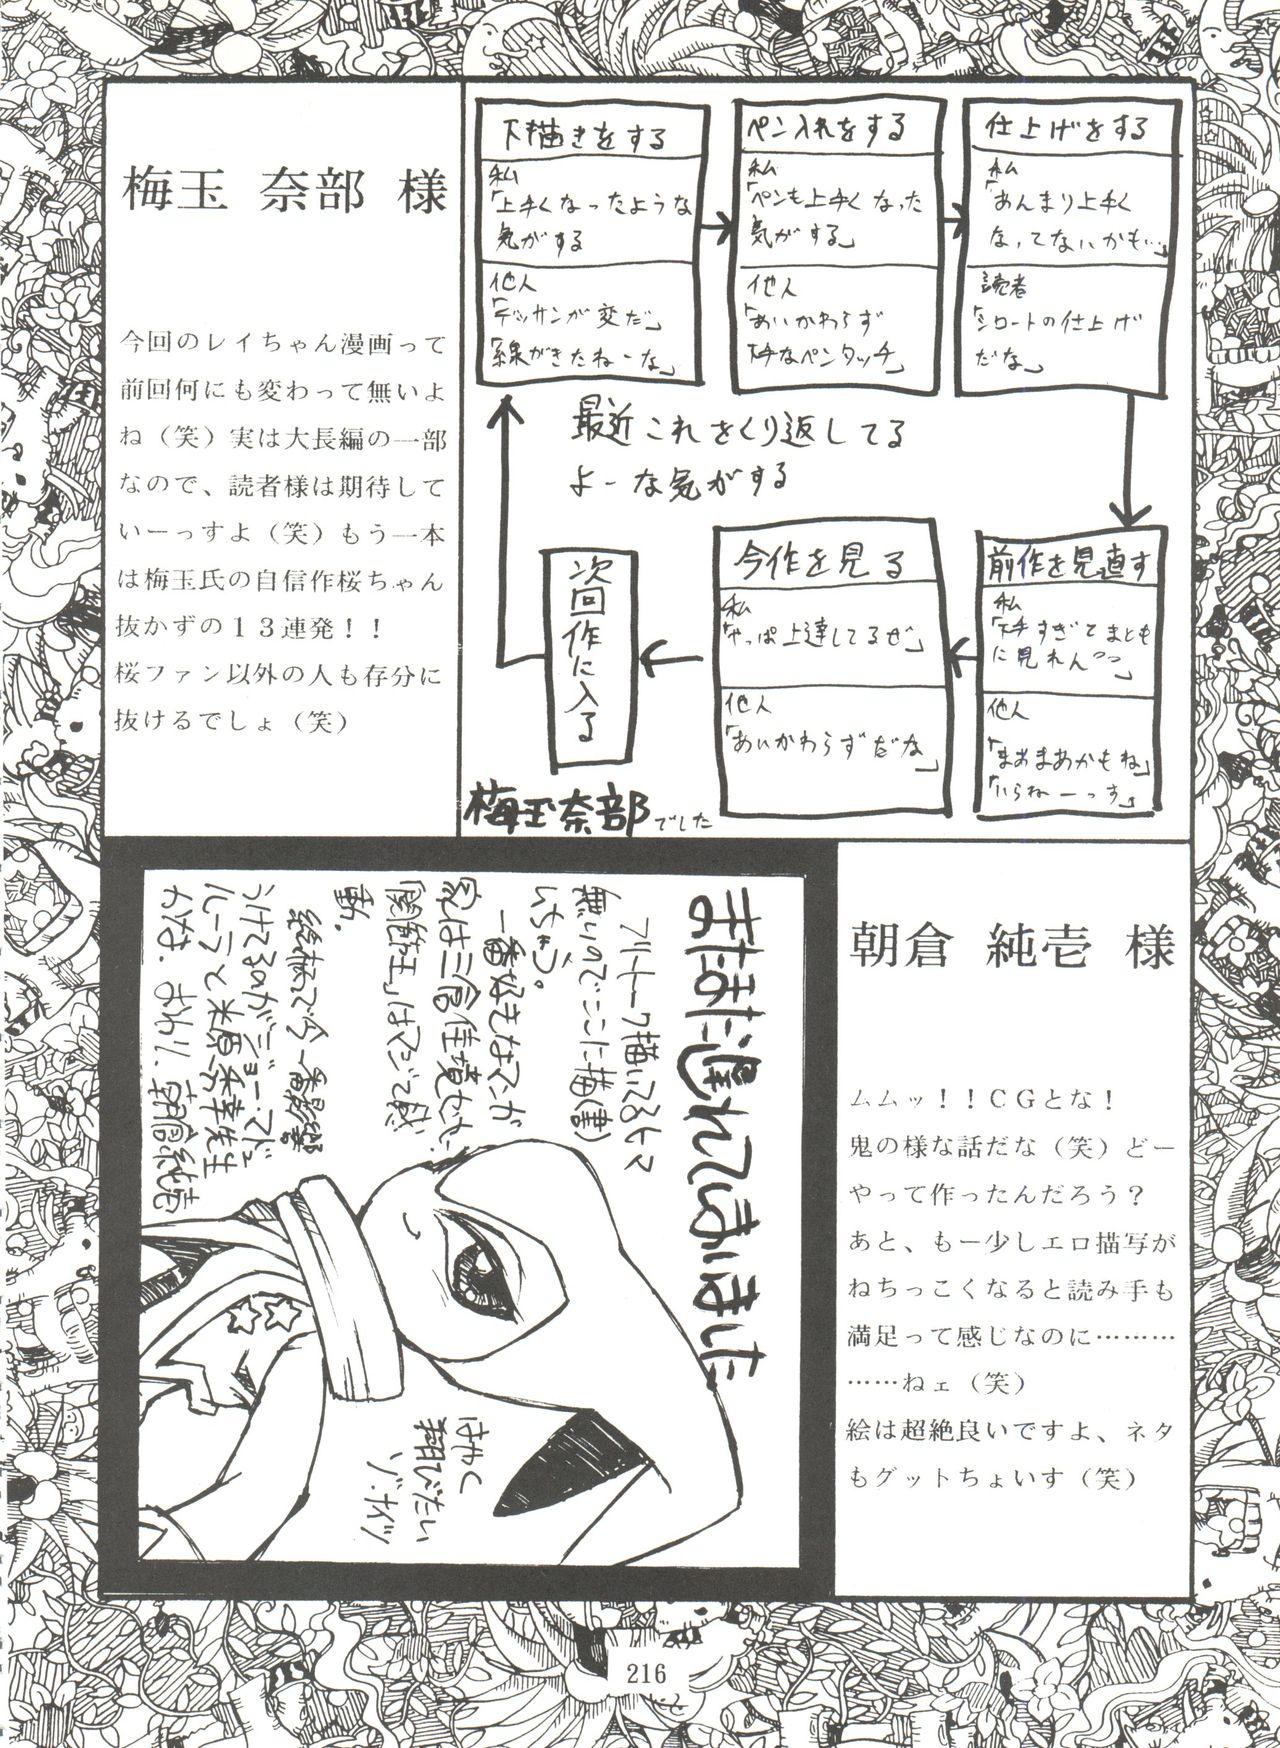 梅玉 奈部 様
今回のレイちゃん漫画って
前回何にも変わって無いよ
ね（笑）実は大長編の一部
なので、読者様は期待して
いーっすよ（笑）もう一本
は梅玉氏の自信作桜ちゃん
抜かずの１３連発！！
桜ファン以外の人も存分に
抜けるでしょ（笑）
下描きをする
私
「上手くなったような
気がする
他人
「デッサンが変だ」
「線がきたねーな」
ペン入れをする
私
「ペンも上手くなった
気がする」
他人
「あいかわらず
なペンタッチ」
仕上げをする
私
「あんまり上手く
なってないかも…」
読者
「シロートの仕上げ
だな」
最近これをくり返してる
よーな気がする
前作を見直す
私
すぎてまとも
に見れん」
他人
「まあまあかもね」
「いらねーっす」
今作を見る
私
「やっぱ上達してるぜ」
他人
「あいかわらずだな」
次回作に入る
梅玉奈部でした
朝倉 純壱 様
ムムッ！！ＣＧとな！
鬼の様な話だな（笑）どー
やって作ったんだろう？
あと、もー少しエロ描写が
ねちっこくなると読み手も
満足って感じなのに………
……ねェ（笑）
絵は超絶良いですよ、ネタ
もグットちょいす（笑）
またまた遅れてしまいました
フリートーク描いてるヒマ
無いのでここに描(書)
いちゃう。
一番好きなマンガ
家は三倉佳境さん。
「闇雄王」はマジで感
動。
絵柄で今一番影響
うけてるのがジョー・マドュ
レーラと米原秀幸先生
かな。おわり。朝倉純壱
はやく
翔びたい
ゾ.ナイツ
216